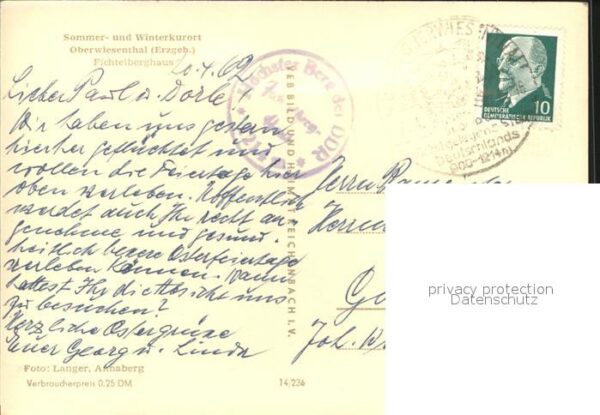 Sommer- und Winterkurort
Oberwiesenthal (Erzgeb.)
Fichtelberghaus
20.4.62
Lieber Paul u. Dorle
Wir haben uns gestern
hierher geflüchtet und
wollen die Feiertage hier
oben verleben. Hoffentlich
werdet auch Ihr recht an-
genehme und gesund-
heitlich bessere Osterfeiertage
verleben können. Wann
hattest Ihr die Absicht uns
zu besuchen?
Herzliche Ostergrüße
Euer Georg u. Linda
Foto: Langer, Annaberg
Verbraucherpreis 0,25 DM
14/236
VEB BILD UND HEIMAT REICHENBACH I. V.
Höchster Berg der DDR
DEUTSCHE
DEMOKRATISCHE REPUBLIK
10
Deutschlands
900-1214 m
Herrn
Herrn
privacy protection
Datenschutz